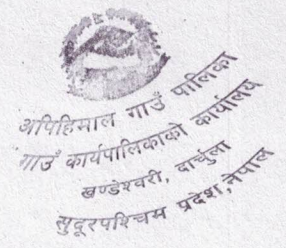 अपिहिमाल गाउँ पालिका
गाउँ कार्यपालिकाको कार्यालय
खण्डेश्वरी, दार्चुला
सुदूरपश्चिम प्रदेश,नेपाल